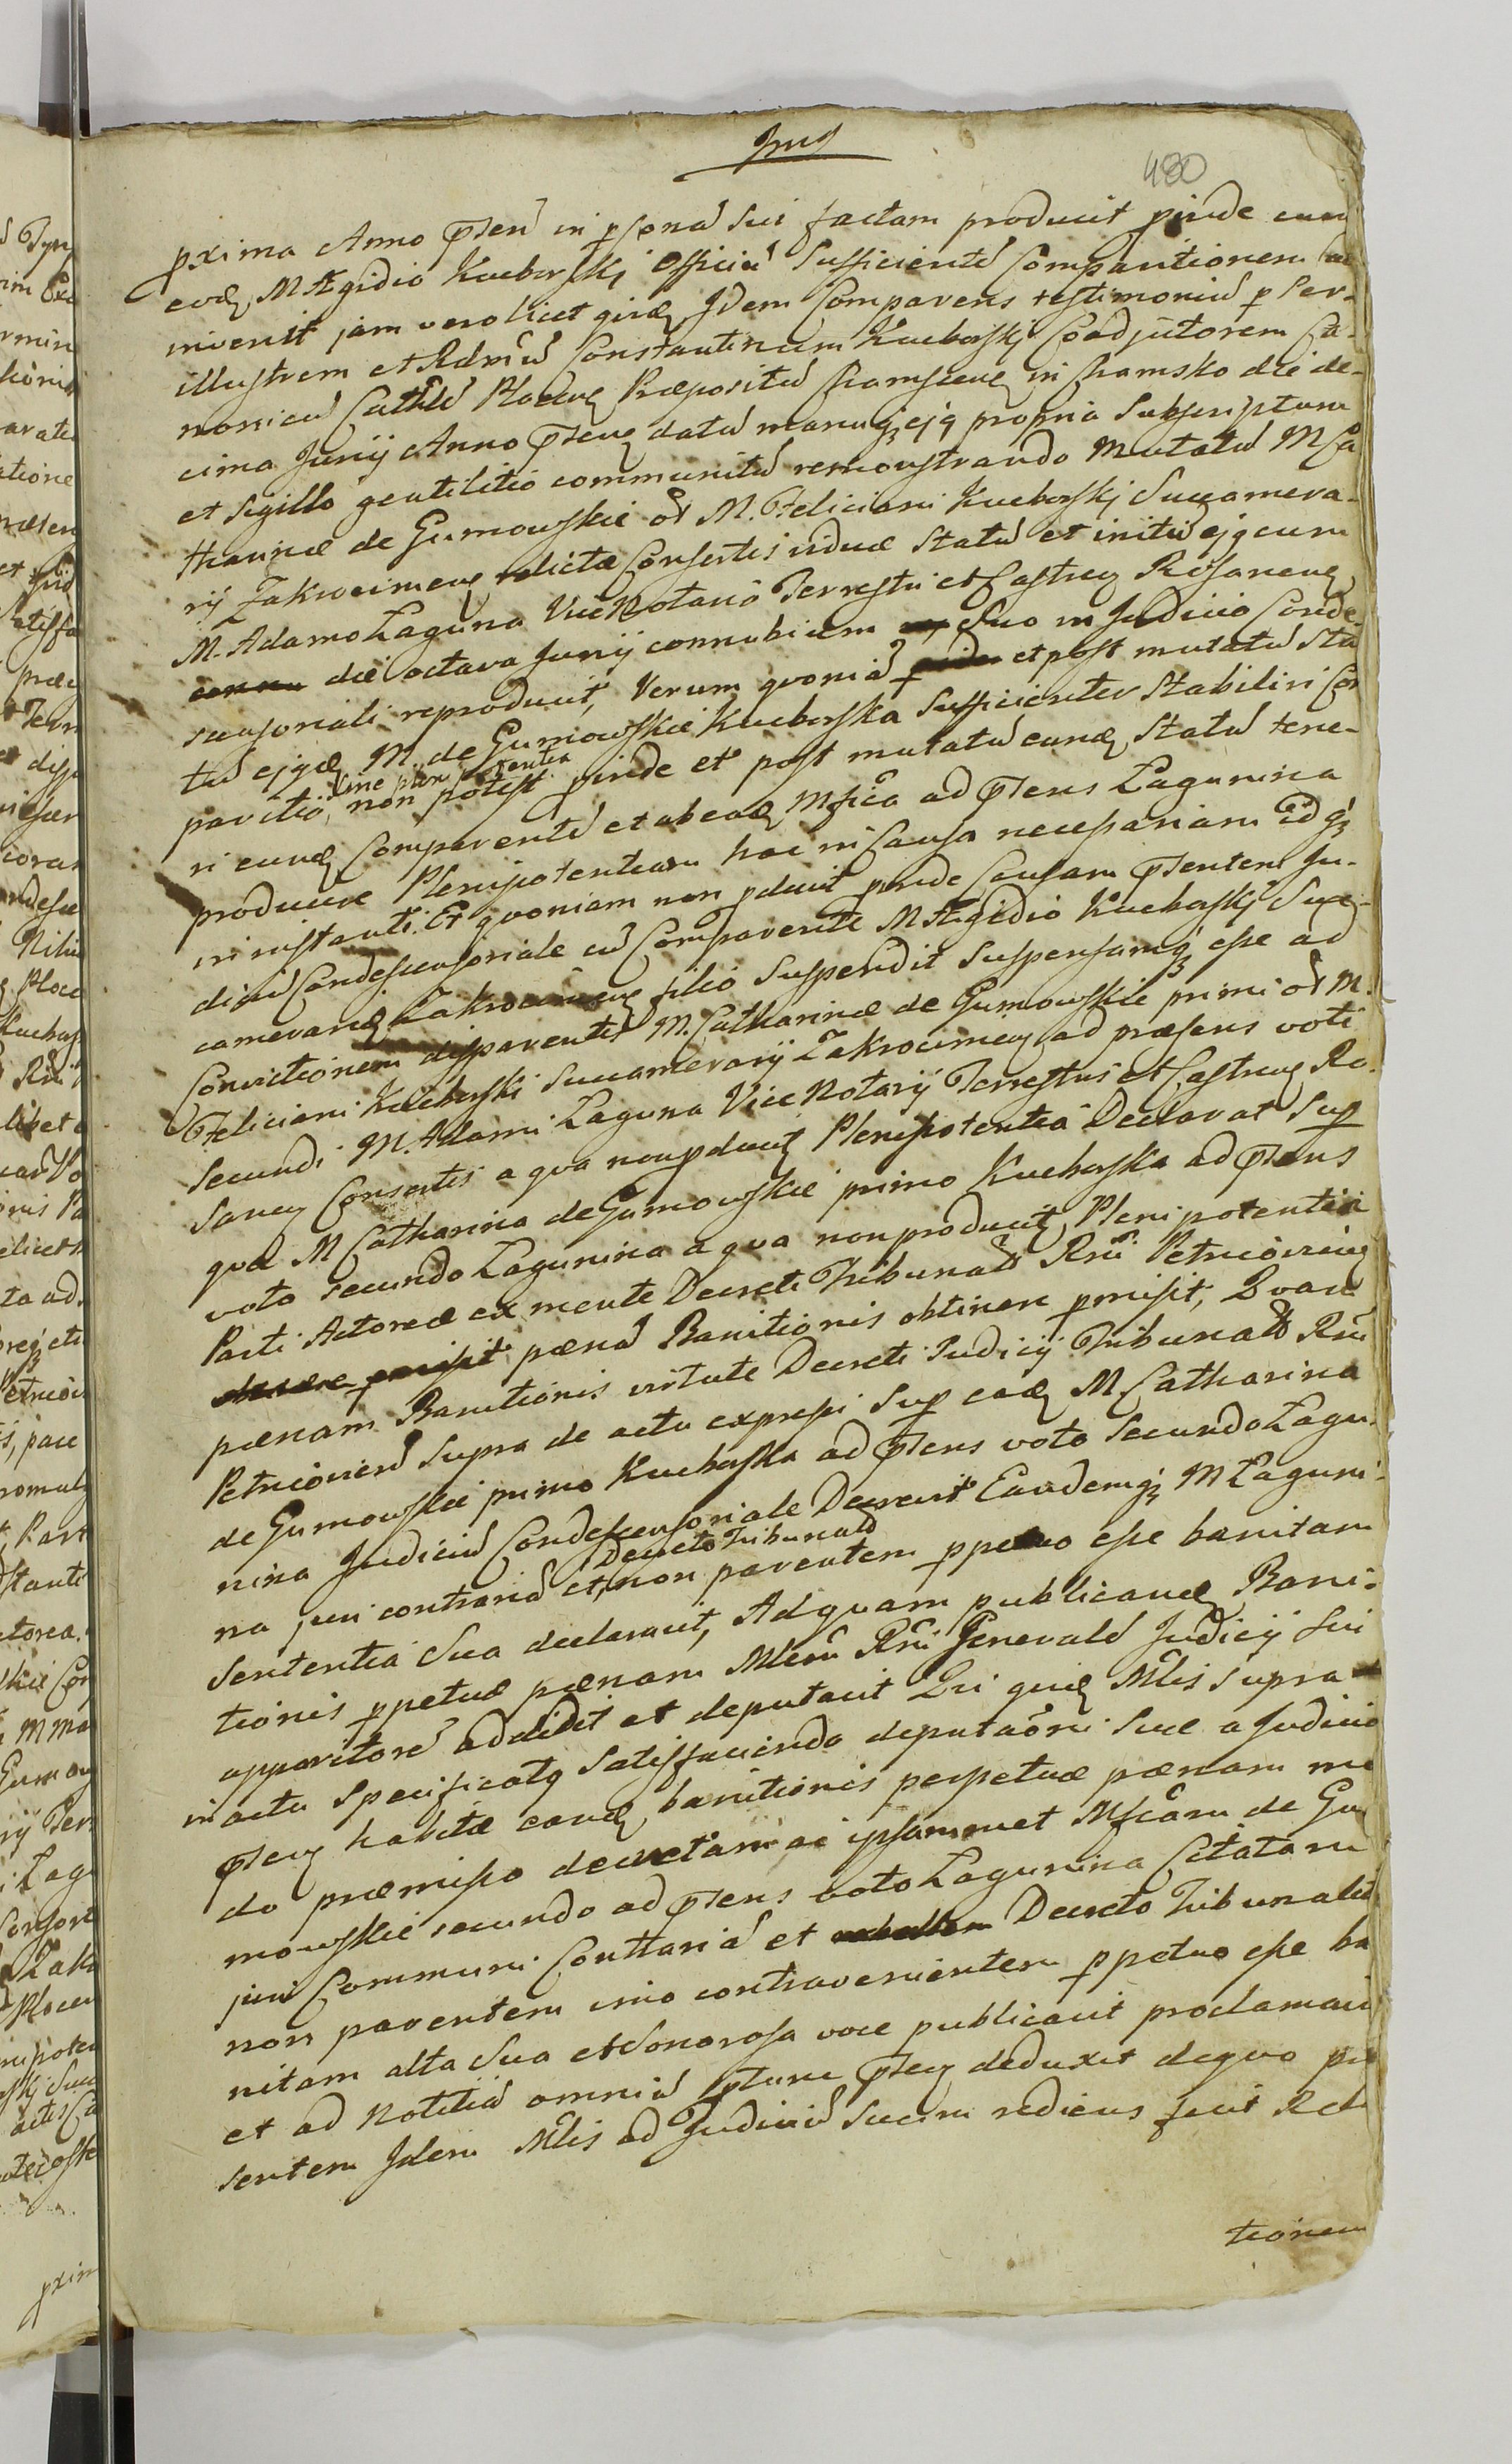 480
pxima Anno pñten in psona sui factam producit pinde cum
eodẽ M Ægidio Kucborskj Officiũ Sufficientẽ Comparitionem
invenit jam vero licet qirã Idem Comparens testimoniũ p Per-
illustrem et Rdmũ Constantinum Kucborskj Coadjutorem Ca-
nonicũ Cathlẽ Plocẽ Præpositũ Chamscen in Chamsko die de-
cima Junij Anno pñten datũ manuqȝ ejq propria Subscriptum
et Sigillo gentilitio communitũ remonstrando Mutatũ M Ca
tharinæ de Gumowskie oł M. Feliciani Kucborskj Succamera-
rij Zakrocimen relictæ Consortis viduæ Statũ et initũ ejq cum
M. Adamo Laguna Vice Notario Terrestri et Castren Rosanen
die octava Junij connubium Suo in Judicio Conde-
scensoriali reproducit, Verum qvoniã et post mutatũ Sta
tũ ejqdẽ M. de Gumowskie Kucborska Sufficienter Stabiliri Com
sine plenipotentia
paritio, non potest pinde et post mutatũ eundẽ Statũ tene-
ri eundẽ Comparentẽ et ab eadẽ Mfica ad pñtens Lagunina
producere Plenipotentiam hac in Causa necessariam Idqȝ
in instanti. Et qvoniam non pducit pinde Causam pñtentem Ju-
diciũ Condescensoriale cũ Comparente M Ægidio Kucborskj Succ-
camerarij Zakrocimen filio Suspendit Suspensamqȝ esse ad
Convictionem disparentis M. Catharinæ de Gumowskie primi oł M.
Feliciani Kucborski Succamerarij Zakrocimen ad præsens voti
Secundi M. Adami Laguna Vice Notarij Terrestris et Castren Ro-
sanen Consortis a qva non pducit Plenipotentia Declarat Sup
qva M Catharina de Gumowskie primo Kucborska ad pñtens
voto secundo Lagunina a qva non producit Plenipotentia
Parti Actoreæ ex mente Decreti Tribunalis Rni Petricovien
pænã Banitionis obtinere pmisit, Qvam
pænam Banitionis virtute Decreti Judicij Tribunalis Rni
Petricovien Supra de actu expressi Sup eadẽ M Catharina
de Gumowskie primo Kucborska ad pñtens voto Secundo Lagu-
nina Judiciũ Condescensoriale Decrevit Eandemqȝ M Laguni-
Decreto Tribunalis
na juri contrariã et, non parentem ppetuo esse banitam
Sententia Sua declaravit, Ad qvam publicandã Bani-
tionis ppetuæ pænam Mlem Rni Generalẽ Judicij sui
apparitorẽ addidit et deputavit Qui quidẽ Mlis Supra
in actu Specificatq Satisfaciendo deputaõni Suæ a Judicio
pñten habitæ eandẽ banitionis perpetuæ pænam mo
do præmisso decretam ac ipsammet Mficam de Gu
mowskie secundo ad pñtens voto Lagunina Citatam
juri Communi Contrariã et Decreto Tribunalis
non parentem imo contravenientem ppetuo esse ba
nitam alta Sua et Sonorosa voce publicavit proclamavit
et ad Notitiã omniũ pñten deduxit de qvo præ
sentem Idem Mlis ad Judiciũ Suum rediens fecit Rela
tionem